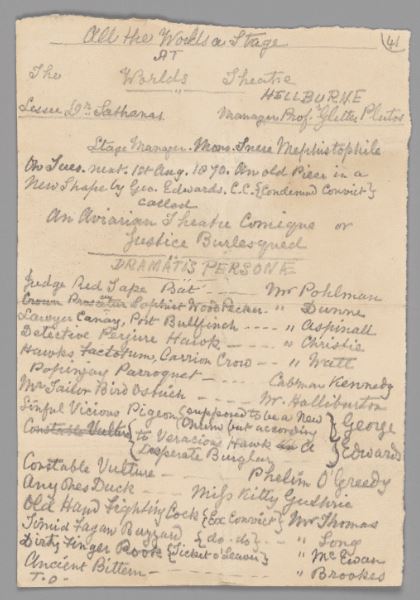 All the Worlds a Stage
41
AT
The Worlds Theatre
HELLBURNE
Lessee Dr. Sathanas Manager Prof. Glitter Plutos
Stage Manager. Mons. Snere Mephistophile
On Tues. next. 1st Aug. 1870. An old Piece in a
New Shape by Geo. Edwards. C.C. {Condemnd Convict}
called
An Aviarian Theatre Comique or
Justice Burlesqued
DRAMATIS PERSONE
Judge Red Tape Bat - - - - Mr Pohlman
Crown Prosecutor Sophist Woodpecker - " Dunne
Lawyer Canary, Port Bullfinch - - - - " Aspinall
Detective Perjure Hawk - - - - - " Christie
Hawks, Factotum, Carrion Crow - - " Watt
Popinjay Parroquet - - - - Cabman Kennedy
Mr Tailor Bird Ostrich - - - - W. Halliburton
Sinful Vicious Pigeon {supposed to be a New
Constable Vulture Chum but according George
{to Veracious Hawk a
Desperate Burglar} Edwards
Constable Vulture - - Phelim O'Greedy
Any Ones Duck - - - Miss Kitty Guthrie
Old Hand Fighting Cock {Ex Convict} Mr Thomas
Timid Fagan Buzzard {do - do} - - " Long
Dirty Finger Rook {Ticket o' Leaver} " McEwan
Ancient Bittern - - - - - " Brookes
T.O.